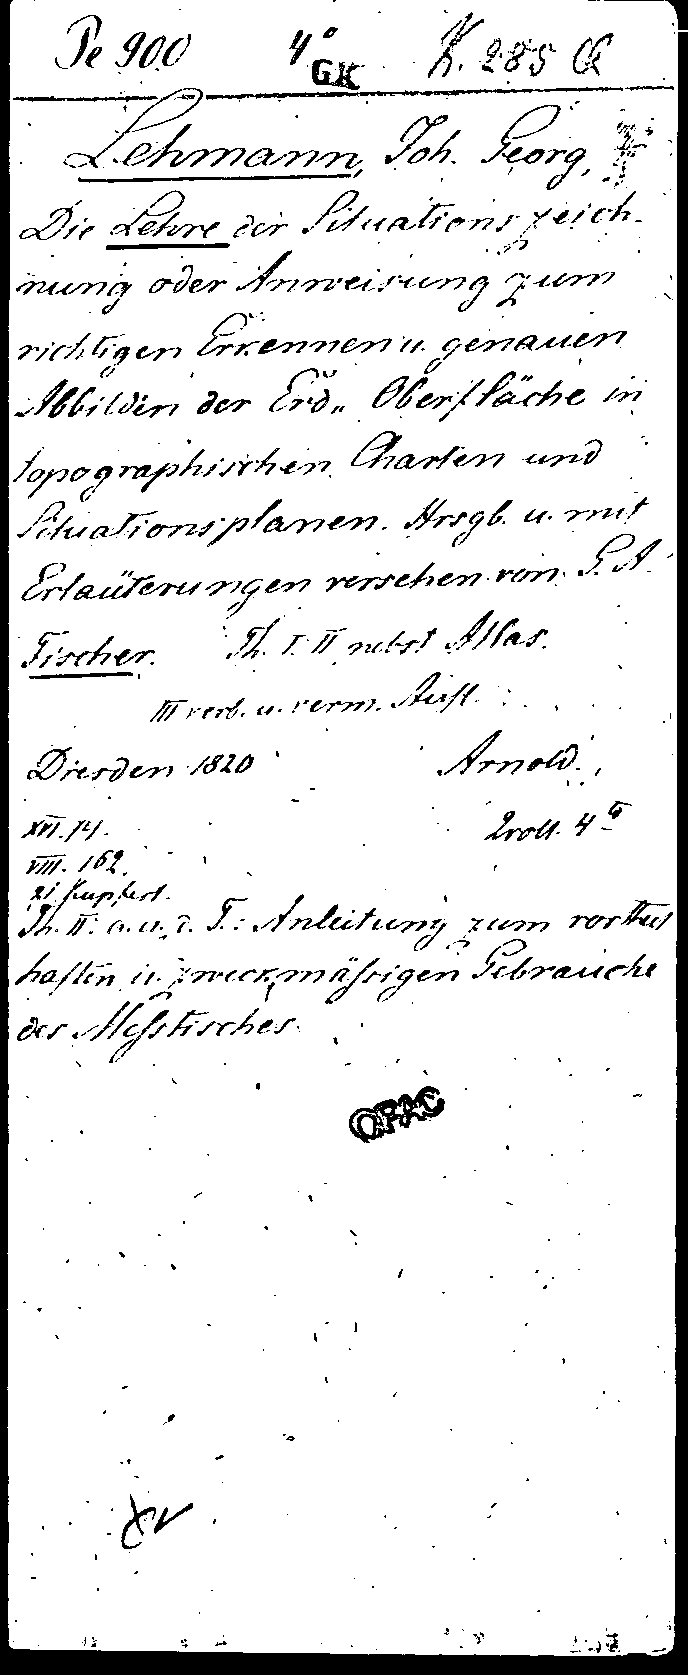 Pe 900 4° K. 285 a
GK
Lehmann, Joh. Georg,
Die Lehre der Situationszeich-
nung oder Anweisung zum
richtigen Erkennen u. genauen
Abbilden der Erd„ Oberfläche in
topographischen Charten und
Situationsplanen. Hrsgb. u. mit
Erläuterungen versehen von G. A.
Fischer. Th. I. II nebst Atlas.
III verb. u. verm. Aufl.
Dresden 1820 Arnold.
XVI. 74. 2 voll. 4°
VIII. 162.
21 Kupfert.
Th. II. a. u. d. T.: Anleitung zum vortheil
haften u. zweckmäßigen Gebrauche
des Meßtisches.
OPAC